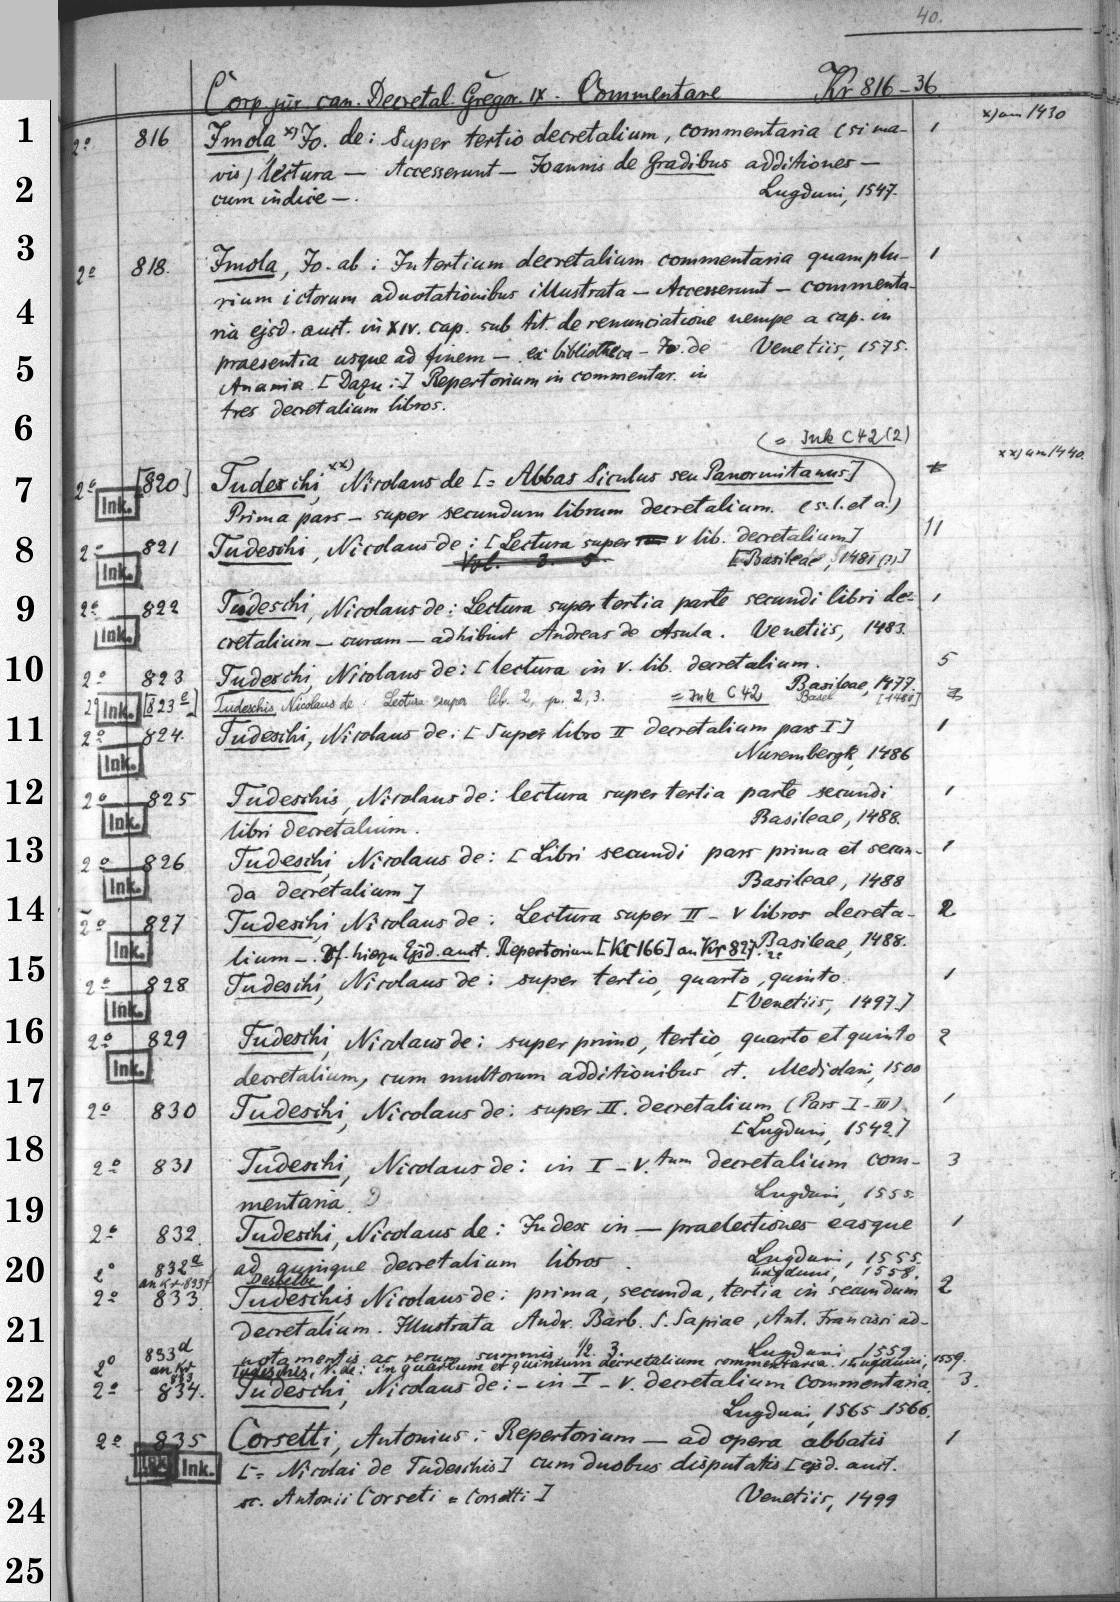 40.
Corp. jur. can. Decretal. Gregor. IX. Commentare Kr 816-36
x) um 1430
1
2º 816 Imola x) Jo. de: Super tertio decretalium, commentaria (si ma- 1
vis) lectura — Accesserunt — Joannis de Gradibus additiones —
2
cum indice —. Lugduni, 1547.
3
2º 818. Imola, Jo. ab: In tertium decretalium commentaria quamplu- 1
rium ictorum adnotationibus illustrata — Accesserunt — commenta-
4
ria ejsd. auct. in XIV. cap. sub tit. de renunciatione nempe a cap. in
praesentia usque ad finem — ex bibliotheca — Jo. de Venetiis, 1575.
5
Anania [Dazu:] Repertorium in commentar. in
tres decretalium libros.
6
(= Ink C 42 (2)
xx) um 1440.
7
2º [820] Tudeschi, xx) Nicolaus de [= Abbas Siculus seu Panormitanus]
Ink. Prima pars — super secundum librum decretalium. (s. l. et a.)
8
2º 821 Tudeschi, Nicolaus de: [Lectura super v lib. decretalium] 11
Ink. Vol. 3. 5 [Basileae, 1481 (?)]
9
2º 822 Tudeschi, Nicolaus de: Lectura super tertia parte secundi libri de- 1
Ink. cretalium — curam — adhibuit Andreas de Asula. Venetiis, 1483.
10
2º 823 Tudeschi, Nicolaus de: [lectura in v. lib. decretalium. 5
Basileae, 1477.
2º Ink. [823 e] Tudeschis, Nicolaus de: Lectura super lib. 2, p. 2, 3. = Ink C 42 Basel [1481]
11
2º 824. Tudeschi, Nicolaus de: [Super libro II decretalium pars I] 1
Ink. Nurembergk, 1486
12
2º 825 Tudeschis, Nicolaus de: lectura super tertia parte secundi 1
Ink. libri decretalium. Basileae, 1488.
13
2º 826 Tudeschi, Nicolaus de: [Libri secundi pars prima et secun- 1
Ink. da decretalium] Basileae, 1488
14
2º 827 Tudeschi, Nicolaus de: Lectura super II - V libros decreta- 2
Ink. lium —. Cf. hierzu Ejsd. auct. Repertorium [Kr 166] an Kr 827. Basileae, 1488.
15
2º 828 Tudeschi, Nicolaus de: super tertio, quarto, quinto. 1
Ink. [Venetiis, 1497.]
16
2º 829 Tudeschi, Nicolaus de: super primo, tertio, quarto et quinto 2
Ink. decretalium, cum multorum additionibus et. Mediolani, 1500
17
2º 830 Tudeschi, Nicolaus de: super II. decretalium (Pars I - III) 1
[Lugduni, 1542.]
18
2º 831 Tudeschi, Nicolaus de: in I - V. tum decretalium com- 3
mentaria. Lugduni, 1555.
19
2º 832. Tudeschi, Nicolaus de: Index in — praelectiones easque 1
ad quinque decretalium libros. Lugduni, 1555.
20
2º 832 a an Kr 833 Desselbe Lugduni, 1558.
2º 833. Tudeschis, Nicolaus de: prima, secunda, tertia in secundum 2
21
decretalium. Illustrata Andr. Barb. S. Sapiae, Ant. Francisci ad-
notamentis ac rerum summis. 1/2. 3. Lugduni, 1559
2º 833 d an Kr 833 Tudeschis, N. de: in quartum et quintum decretalium commentaria. Lugduni, 1559.
22
2º 834. Tudeschi, Nicolaus de: — in I - V. decretalium commentaria. 3.
Lugduni, 1565-1566.
23
2º 835 Corsetti, Antonius: Repertorium — ad opera abbatis 1
Ink. [= Nicolai de Tudeschis] cum duobus disputatis [ejsd. auct.
24
sc. Antonii Corseti = Corsetti] Venetiis, 1499
25